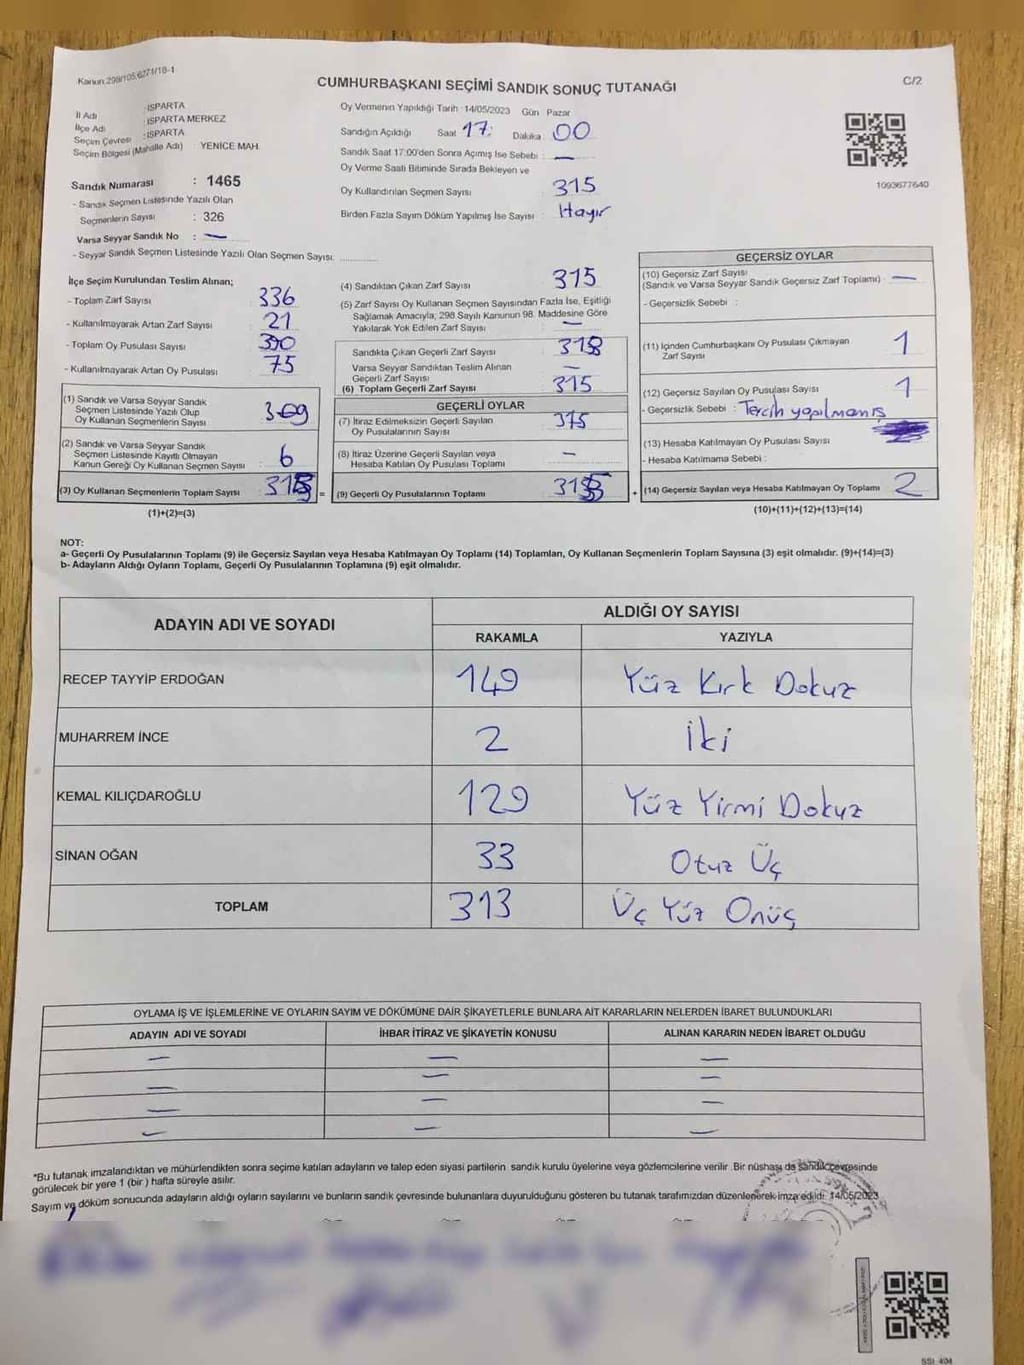 Kanun:298/105;6271/18-1
CUMHURBAŞKANI SEÇİMİ SANDIK SONUÇ TUTANAĞI
C/2
İl Adı : ISPARTA
İlçe Adı : ISPARTA MERKEZ
Seçim Çevresi : ISPARTA
Seçim Bölgesi (Mahalle Adı) YENICE MAH.
Sandık Numarası : 1465
- Sandık Seçmen Listesinde Yazılı Olan
Seçmenlerin Sayısı : 326
Varsa Seyyar Sandık No : —
- Seyyar Sandık Seçmen Listesinde Yazılı Olan Seçmen Sayısı: ............
Oy Vermenin Yapıldığı Tarih :14/05/2023 Gün Pazar
Sandığın Açıldığı Saat 17: Dakika 00
Sandık Saat 17:00'den Sonra Açımış İse Sebebi : —
Oy Verme Saati Bitiminde Sırada Bekleyen ve
Oy Kullandırılan Seçmen Sayısı 315
Birden Fazla Sayım Döküm Yapılmış İse Sayısı Hayır
1093677640
İlçe Seçim Kurulundan Teslim Alınan;
- Toplam Zarf Sayısı 336
- Kullanılmayarak Artan Zarf Sayısı 21
- Toplam Oy Pusulası Sayısı 390
- Kullanılmayarak Artan Oy Pusulası 75
(1) Sandık ve Varsa Seyyar Sandık
Seçmen Listesinde Yazılı Olup
Oy Kullanan Seçmenlerin Sayısı 309
(2) Sandık ve Varsa Seyyar Sandık
Seçmen Listesinde Kayıtlı Olmayan
Kanun Gereği Oy Kullanan Seçmen Sayısı 6
(3) Oy Kullanan Seçmenlerin Toplam Sayısı 315 =
(1)+(2)=(3)
(4) Sandıktan Çıkan Zarf Sayısı 315
(5) Zarf Sayısı Oy Kullanan Seçmen Sayısından Fazla İse, Eşitliği
Sağlamak Amacıyla; 298 Sayılı Kanunun 98. Maddesine Göre
Yakılarak Yok Edilen Zarf Sayısı —
Sandıkta Çıkan Geçerli Zarf Sayısı
Varsa Seyyar Sandıktan Teslim Alınan
Geçerli Zarf Sayısı —
(6) Toplam Geçerli Zarf Sayısı 315
GEÇERLİ OYLAR
(7) İtiraz Edilmeksizin Geçerli Sayılan
Oy Pusulalarının Sayısı
(8) İtiraz Üzerine Geçerli Sayılan veya
Hesaba Katılan Oy Pusulası Toplamı —
(9) Geçerli Oy Pusulalarının Toplamı +
GEÇERSİZ OYLAR
(10) Geçersiz Zarf Sayısı
(Sandık ve Varsa Seyyar Sandık Geçersiz Zarf Toplamı) —
- Geçersizlik Sebebi :
(11) İçinden Cumhurbaşkanı Oy Pusulası Çıkmayan
Zarf Sayısı 1
(12) Geçersiz Sayılan Oy Pusulası Sayısı 1
- Geçersizlik Sebebi : Tercih yapılmamış
(13) Hesaba Katılmayan Oy Pusulası Sayısı
- Hesaba Katılmama Sebebi :
(14) Geçersiz Sayılan veya Hesaba Katılmayan Oy Toplamı 2
(10)+(11)+(12)+(13)=(14)
NOT:
a- Geçerli Oy Pusulalarının Toplamı (9) ile Geçersiz Sayılan veya Hesaba Katılmayan Oy Toplamı (14) Toplamları, Oy Kullanan Seçmenlerin Toplam Sayısına (3) eşit olmalıdır. (9)+(14)=(3)
b- Adayların Aldığı Oyların Toplamı, Geçerli Oy Pusulalarının Toplamına (9) eşit olmalıdır.
ADAYIN ADI VE SOYADI
ALDIĞI OY SAYISI
RAKAMLA YAZIYLA
RECEP TAYYİP ERDOĞAN 149 Yüz Kırk Dokuz
MUHARREM İNCE 2 İki
KEMAL KILIÇDAROĞLU 129 Yüz Yirmi Dokuz
SİNAN OĞAN 33 Otuz Üç
TOPLAM 313 Üç Yüz Onüç
OYLAMA İŞ VE İŞLEMLERİNE VE OYLARIN SAYIM VE DÖKÜMÜNE DAİR ŞİKAYETLERLE BUNLARA AİT KARARLARIN NELERDEN İBARET BULUNDUKLARI
ADAYIN ADI VE SOYADI İHBAR İTİRAZ VE ŞİKAYETİN KONUSU ALINAN KARARIN NEDEN İBARET OLDUĞU
— — —
— — —
— — —
— — —
*Bu tutanak imzalandıktan ve mühürlendikten sonra seçime katılan adayların ve talep eden siyasi partilerin sandık kurulu üyelerine veya gözlemcilerine verilir .Bir nüshası da sandık çevresinde
görülecek bir yere 1 (bir ) hafta süreyle asılır.
Sayım ve döküm sonucunda adayların aldığı oyların sayılarını ve bunların sandık çevresinde bulunanlara duyurulduğunu gösteren bu tutanak tarafımızdan düzenlenerek imza edildi. 14/05/2023